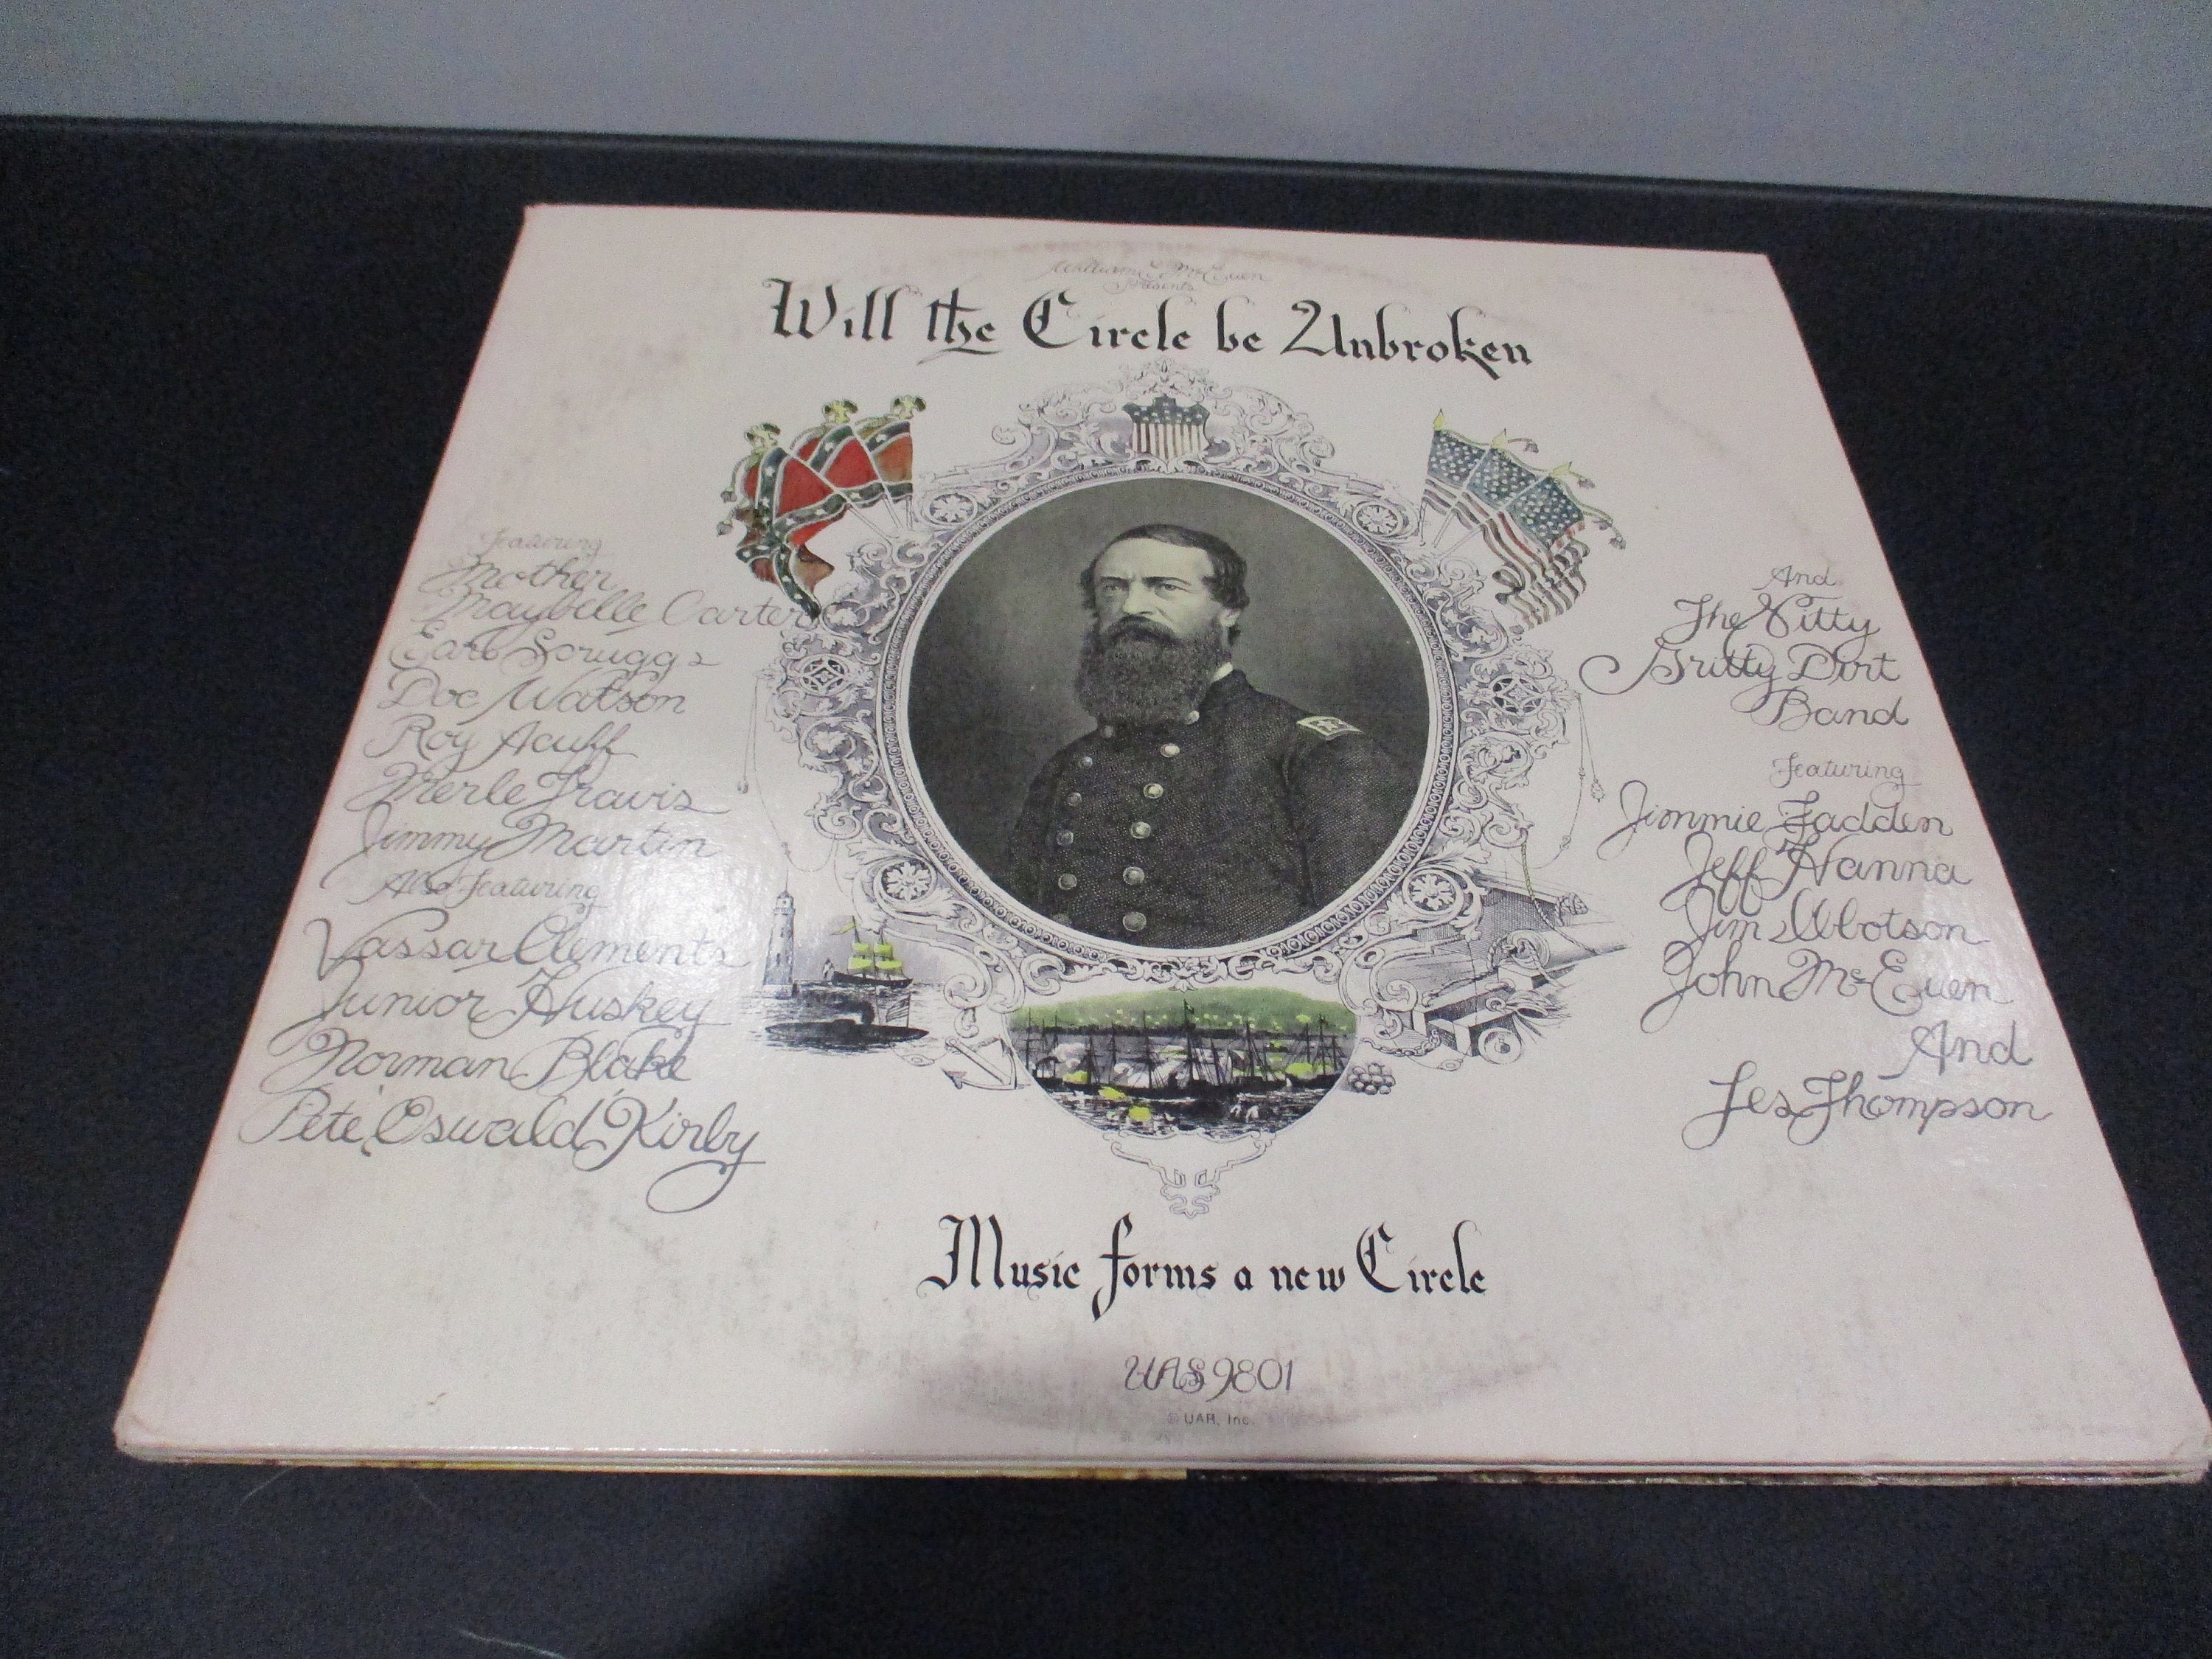 William E. McEuen
Presents
Will the Circle be Unbroken
Featuring
Mother
Maybelle Carter
Earl Scruggs
Doc Watson
Roy Acuff
Merle Travis
Jimmy Martin
Also Featuring
Vassar Clements
Junior Huskey
Norman Blake
Pete Oswald Kirby
And
The Nitty
Gritty Dirt
Band
Featuring
Jimmie Fadden
Jeff Hanna
Jim Ibbotson
John McEuen
And
Les Thompson
Music forms a new Circle
UAS 9801
© UAR, Inc.